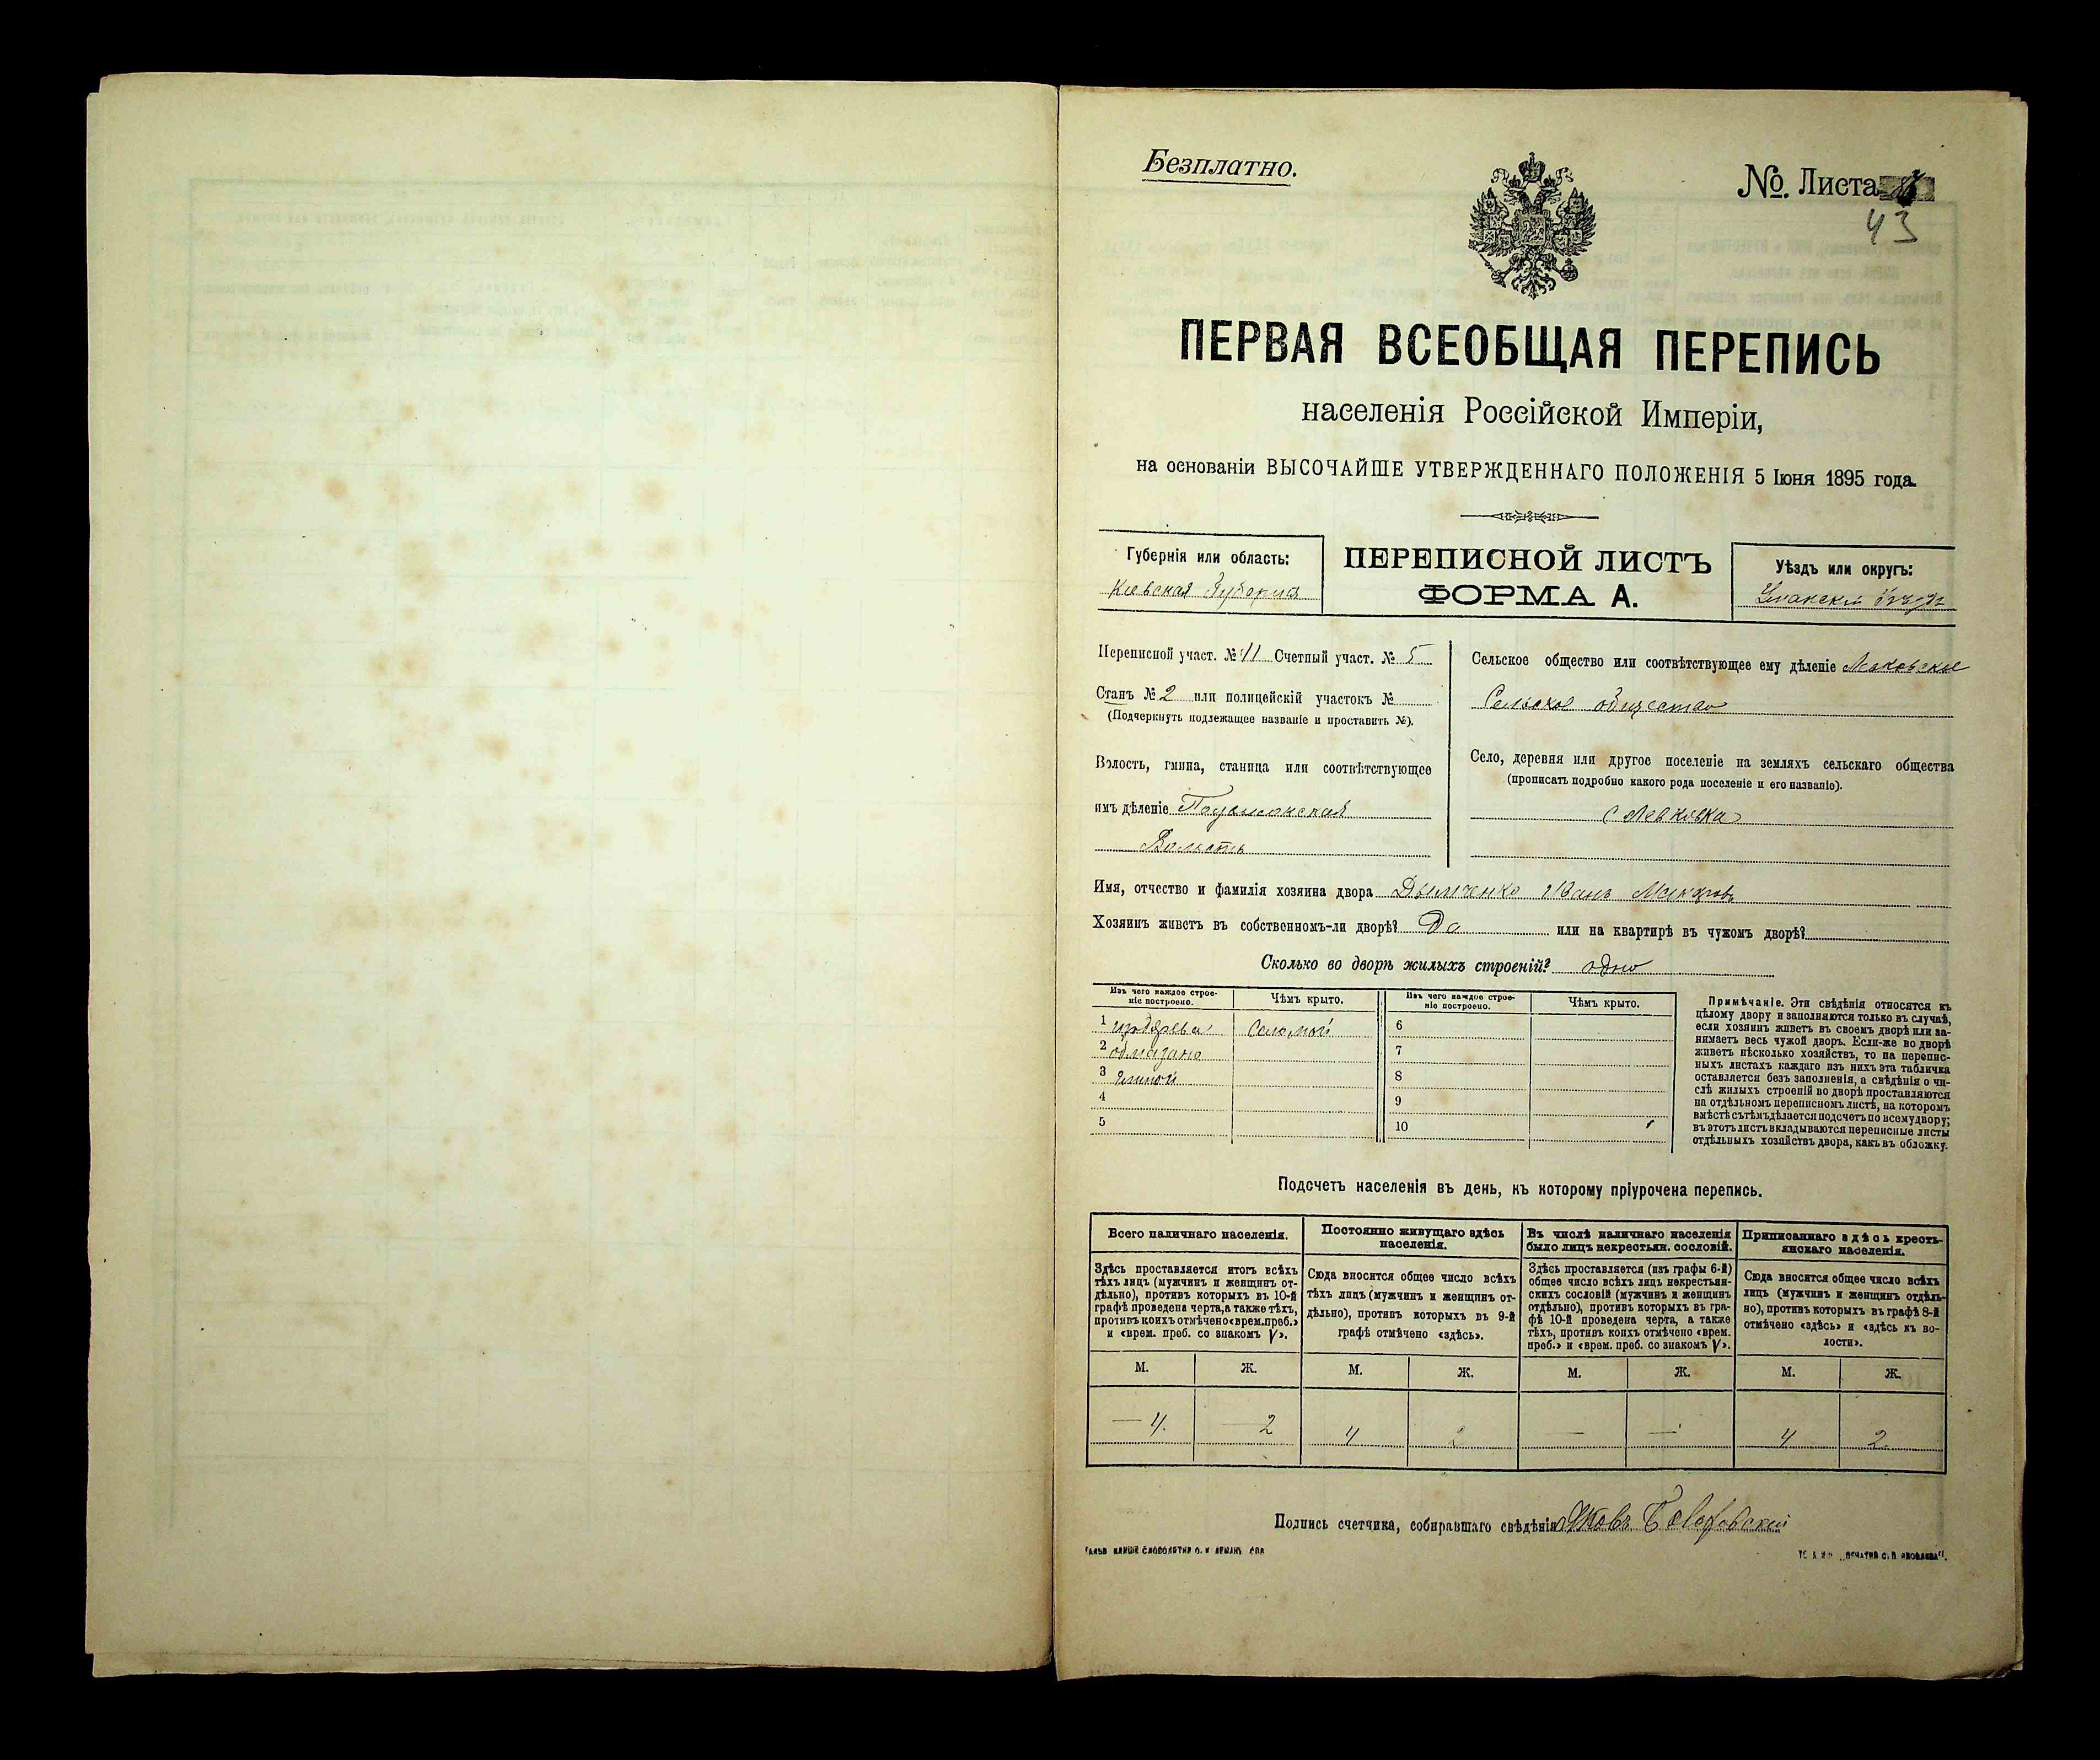 Безплатно.
№ Листа
43
ПЕРВАЯ ВСЕОБЩАЯ ПЕРЕПИСЬ
населенія Россійской Имперіи,
на основаніи ВЫСОЧАЙШЕ УТВЕРЖДЕННАГО ПОЛОЖЕНІЯ 5 Іюня 1895 года.
Губернія или область:
Кіевская Губернія
ПЕРЕПИСНОЙ ЛИСТЪ
ФОРМА А.
Уѣздъ или округъ:
Уманскій Уѣздъ
Переписной участ. № 11 Счетный участ. № 5
Станъ № 2 или полицейскій участокъ №
(Подчеркнуть подлежащее названіе и проставить №).
Волость, гмина, станица или соотвѣтствующее
имъ дѣленіе
Волость
Сельское общество или соотвѣтствующее ему дѣленіе
Сельское общество
Село, деревня или другое поселеніе на земляхъ сельскаго общества
(прописать подробно какого рода поселеніе и его названіе).
с Левковка
Имя, отчество и фамилія хозяина двора Дымченко Иванъ
Хозяинъ живетъ въ собственномъ-ли дворѣ? Да или на квартирѣ въ чужомъ дворѣ?
Сколько во дворѣ жилыхъ строеній? одно
Изъ чего каждое строеніе построено.
Чѣмъ крыто.
Изъ чего каждое строеніе построено.
Чѣмъ крыто.
1 изъ дерева Соломой
2 обмазано
3 глиной
4
5
6
7
8
9
10
Примѣчаніе. Эти свѣдѣнія относятся къ
цѣлому двору и заполняются только въ случаѣ,
если хозяинъ живетъ въ своемъ дворѣ или за-
нимаетъ весь чужой дворъ. Если-же во дворѣ
живетъ нѣсколько хозяйствъ, то на перепис-
ныхъ листахъ каждаго изъ нихъ эта табличка
оставляется безъ заполненія, а свѣдѣнія о чи-
слѣ жилыхъ строеній во дворѣ проставляются
на отдѣльномъ переписномъ листѣ, на которомъ
вмѣстѣ съ тѣмъ дѣлается подсчетъ по всему двору;
въ этотъ листъ вкладываются переписные листы
отдѣльныхъ хозяйствъ двора, какъ въ обложку.
Подсчетъ населенія въ день, къ которому пріурочена перепись.
Всего наличнаго населенія.
Здѣсь проставляется итогъ всѣхъ
тѣхъ лицъ (мужчинъ и женщинъ от-
дѣльно), противъ которыхъ въ 10-й
графѣ проведена черта, а также тѣхъ,
противъ коихъ отмѣчено «врем. преб.»
и «врем. преб. со знакомъ V».
Постоянно живущаго здѣсь
населенія.
Сюда вносится общее число всѣхъ
тѣхъ лицъ (мужчинъ и женщинъ от-
дѣльно), противъ которыхъ въ 9-й
графѣ отмѣчено «здѣсь».
Въ числѣ наличнаго населенія
было лицъ некрестьян. сословій.
Здѣсь проставляется (изъ графы 6-й)
общее число всѣхъ лицъ некрестьян-
скихъ сословій (мужчинъ и женщинъ
отдѣльно), противъ которыхъ въ гра-
фѣ 10-й проведена черта, а также
тѣхъ, противъ коихъ отмѣчено «врем.
преб.» и «врем. преб. со знакомъ V».
Приписаннаго здѣсь кресть-
янскаго населенія.
Сюда вносится общее число всѣхъ
лицъ (мужчинъ и женщинъ отдѣль-
но), противъ которыхъ въ графѣ 8-й
отмѣчено «здѣсь» и «здѣсь къ во-
лости».
М. Ж. М. Ж. М. Ж. М. Ж.
— 4. — 2 4 2 — — 4 2
Подпись счетчика, собиравшаго свѣдѣнія Яковъ